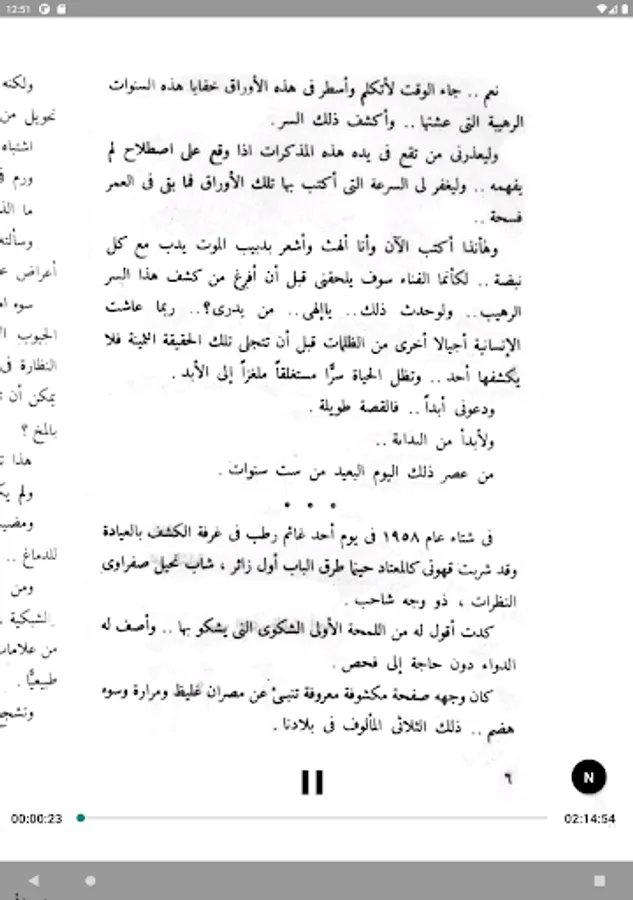 12:51
نعم .. جاء الوقت لأتكلم وأسطر فى هذه الأوراق خفايا هذه السنوات
الرهيبة التى عشتها .. وأكشف ذلك السر .
وليعذرنى من تقع فى يده هذه المذكرات اذا وقع على اصطلاح لم
يفهمه .. وليغفر لى السرعة التى أكتب بها تلك الأوراق فما بقى فى العمر
فسحة ..
وهأنذا أكتب الآن وأنا ألهث وأشعر بدبيب الموت يدب مع كل
نبضة .. لكأنما الفناء سوف يلحقنى قبل أن أفرغ من كشف هذا السر
الرهيب.. ولوحدث ذلك.. ياإلهى.. من يدرى؟.. ربما عاشت
الإنسانية أجيالا أخرى من الظلمات قبل أن تتجلى تلك الحقيقة الثمينة فلا
يكشفها أحد .. وتظل الحياة سرًّا مستغلقاً ملغزاً إلى الأبد .
ودعونى أبدأ .. فالقصة طويلة .
ولأبدأ من البداية ..
من عصر ذلك اليوم البعيد من ست سنوات .
• • •
فى شتاء عام ١٩٥٨ فى يوم أحد غائم رطب فى غرفة الكشف بالعيادة
وقد شربت قهوتى كالمعتاد حينما طرق الباب أول زائر ، شاب نحيل صفراوى
النظرات ، ذو وجه شاحب .
كدت أقول له من اللمحة الأولى الشكوى التى يشكو بها .. وأصف له
الدواء دون حاجة إلى فحص .
كان وجهه صفحة مكشوفة معروفة تنبئ عن مصران غليظ ومرارة وسوء
هضم .. ذلك الثلاثى المألوف فى بلادنا .
٦
ولكنه
تحويل من
اشتباه
ورم
ما
أعراض
سوء
الجيوب
النظارة فى
يمكن أن
بالمخ ؟
هذا
ولم
للدماغ ..
ومن
الشبكية
من علامات
طبيعيًّا .
N
00:00:23
02:14:54